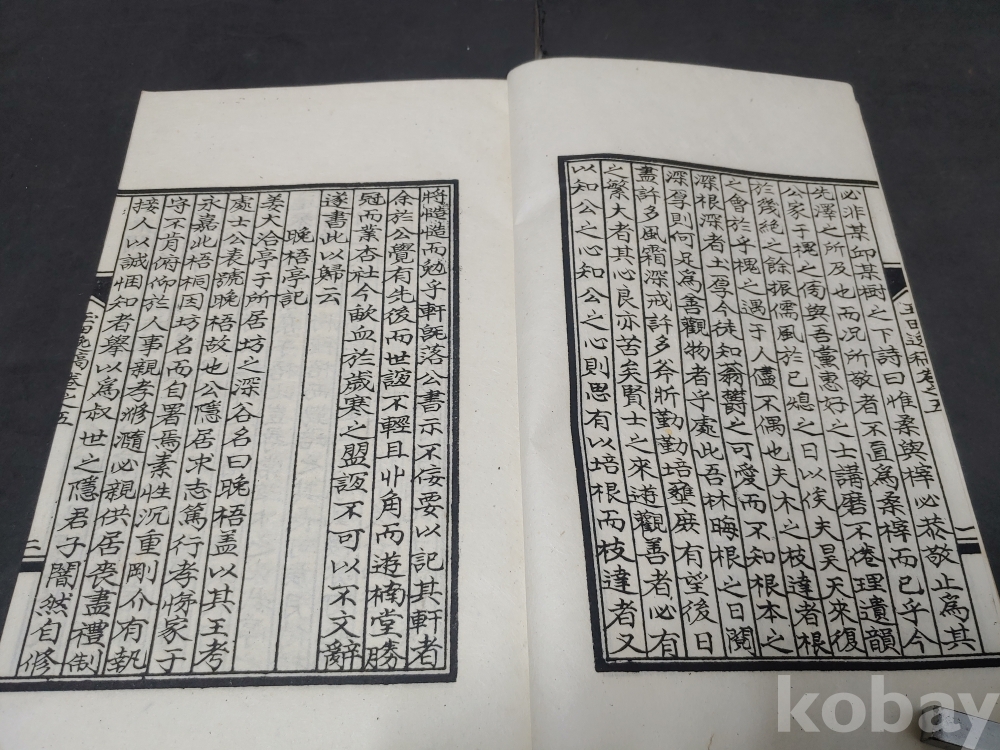 必非某卯某樹之下詩曰惟桑與梓必恭敬止爲其
先澤之所及也而況所敬者不直爲桑梓而已乎今
公家于槐之偶與吾黨惠好之士講磨不倦理遺韻
於幾絶之餘振儒風於已熄之日以俟夫昊天來復
之會於乎槐之遇于人儘不偶也夫木之枝達者根
深根深者土厚今徒知蓊鬱之可愛而不知根本之
深厚則何足爲善觀物者乎處此吾林晦根之日閱
盡許多風霜深戒許多斧斨勤勤培壅庶有望後日
之繁大者其心良亦苦矣賢士之來遊觀善者必有
以知公之心知公之心則思有以培根而枝達者又
卷之五
將慥慥而勉乎軒旣落公書示不侫要以記其軒者
余於公覺有先後而世誼不輕且丱角而遊楠堂勝
冠而業杏社今歃血於歲寒之盟誼不可以不文辭
遂書此以歸云
晩梧亭記
姜大洽亭于所居坊之深谷名曰晩梧盖以其王考
處士公表號晩梧故也公隱居求志篤行孝悌家于
永嘉此梧桐因坊名而自署焉素性沉重剛介有執
守不肯俯仰於人事親孝滫瀡必親供居喪盡禮制
接人以誠悃知者擧以爲叔世之隱君子闇然自修
卷之五
三
kobay